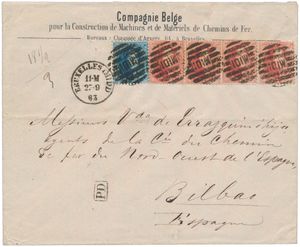 Compagnie Belge
pour la Construction de Machines et de Matériels de Chemins de Fer.
Bureaux - Chaussée d'Anvers, à Bruxelles
BRUXELLES (MIDI)
11-M
27-9
63
Messieurs Vda de Errazquin é hijos
agents de la Cie du Chemin
de fer du Nord Ouest de l'Espagne
PD
Bilbao
Espagne